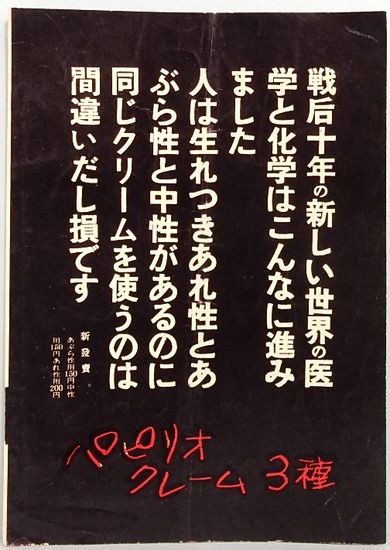 戦后十年の新しい世界の医
学と化学はこんなに進み
ました
人は生れつきあれ性とあ
ぶら性と中性があるのに
同じクリームを使うのは
間違いだし損です
新発賣
あぶら性用150円中性
用150円あれ性用200円
パピリオ
クレーム 3種